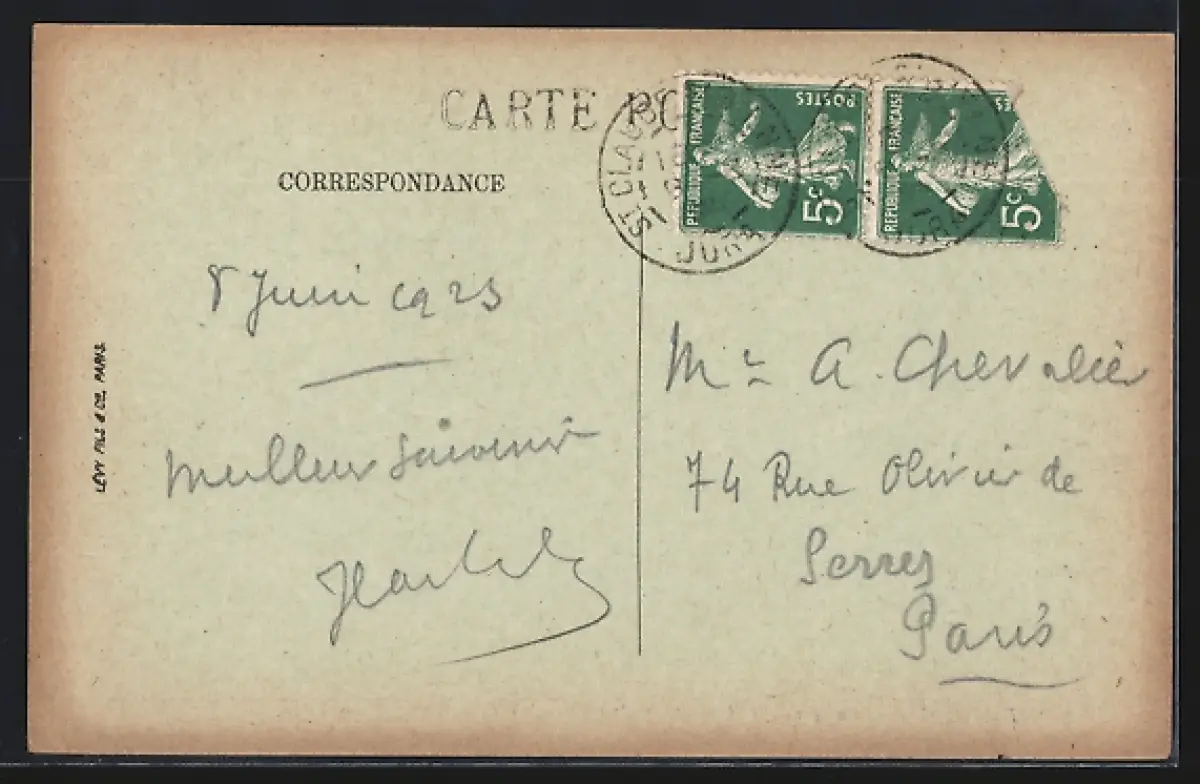 CARTE PO
CORRESPONDANCE
REPUBLIQUE FRANÇAISE
POSTES
5c
REPUBLIQUE FRANÇAISE
POSTES
5c
ST CLAUDE
JURA
JURA
8 Juin 1923
Meilleur Souvenir
LÉVY FILS & CIE, PARIS
Mr A. Chevalier
74 Rue Olivier de
Serres
Paris